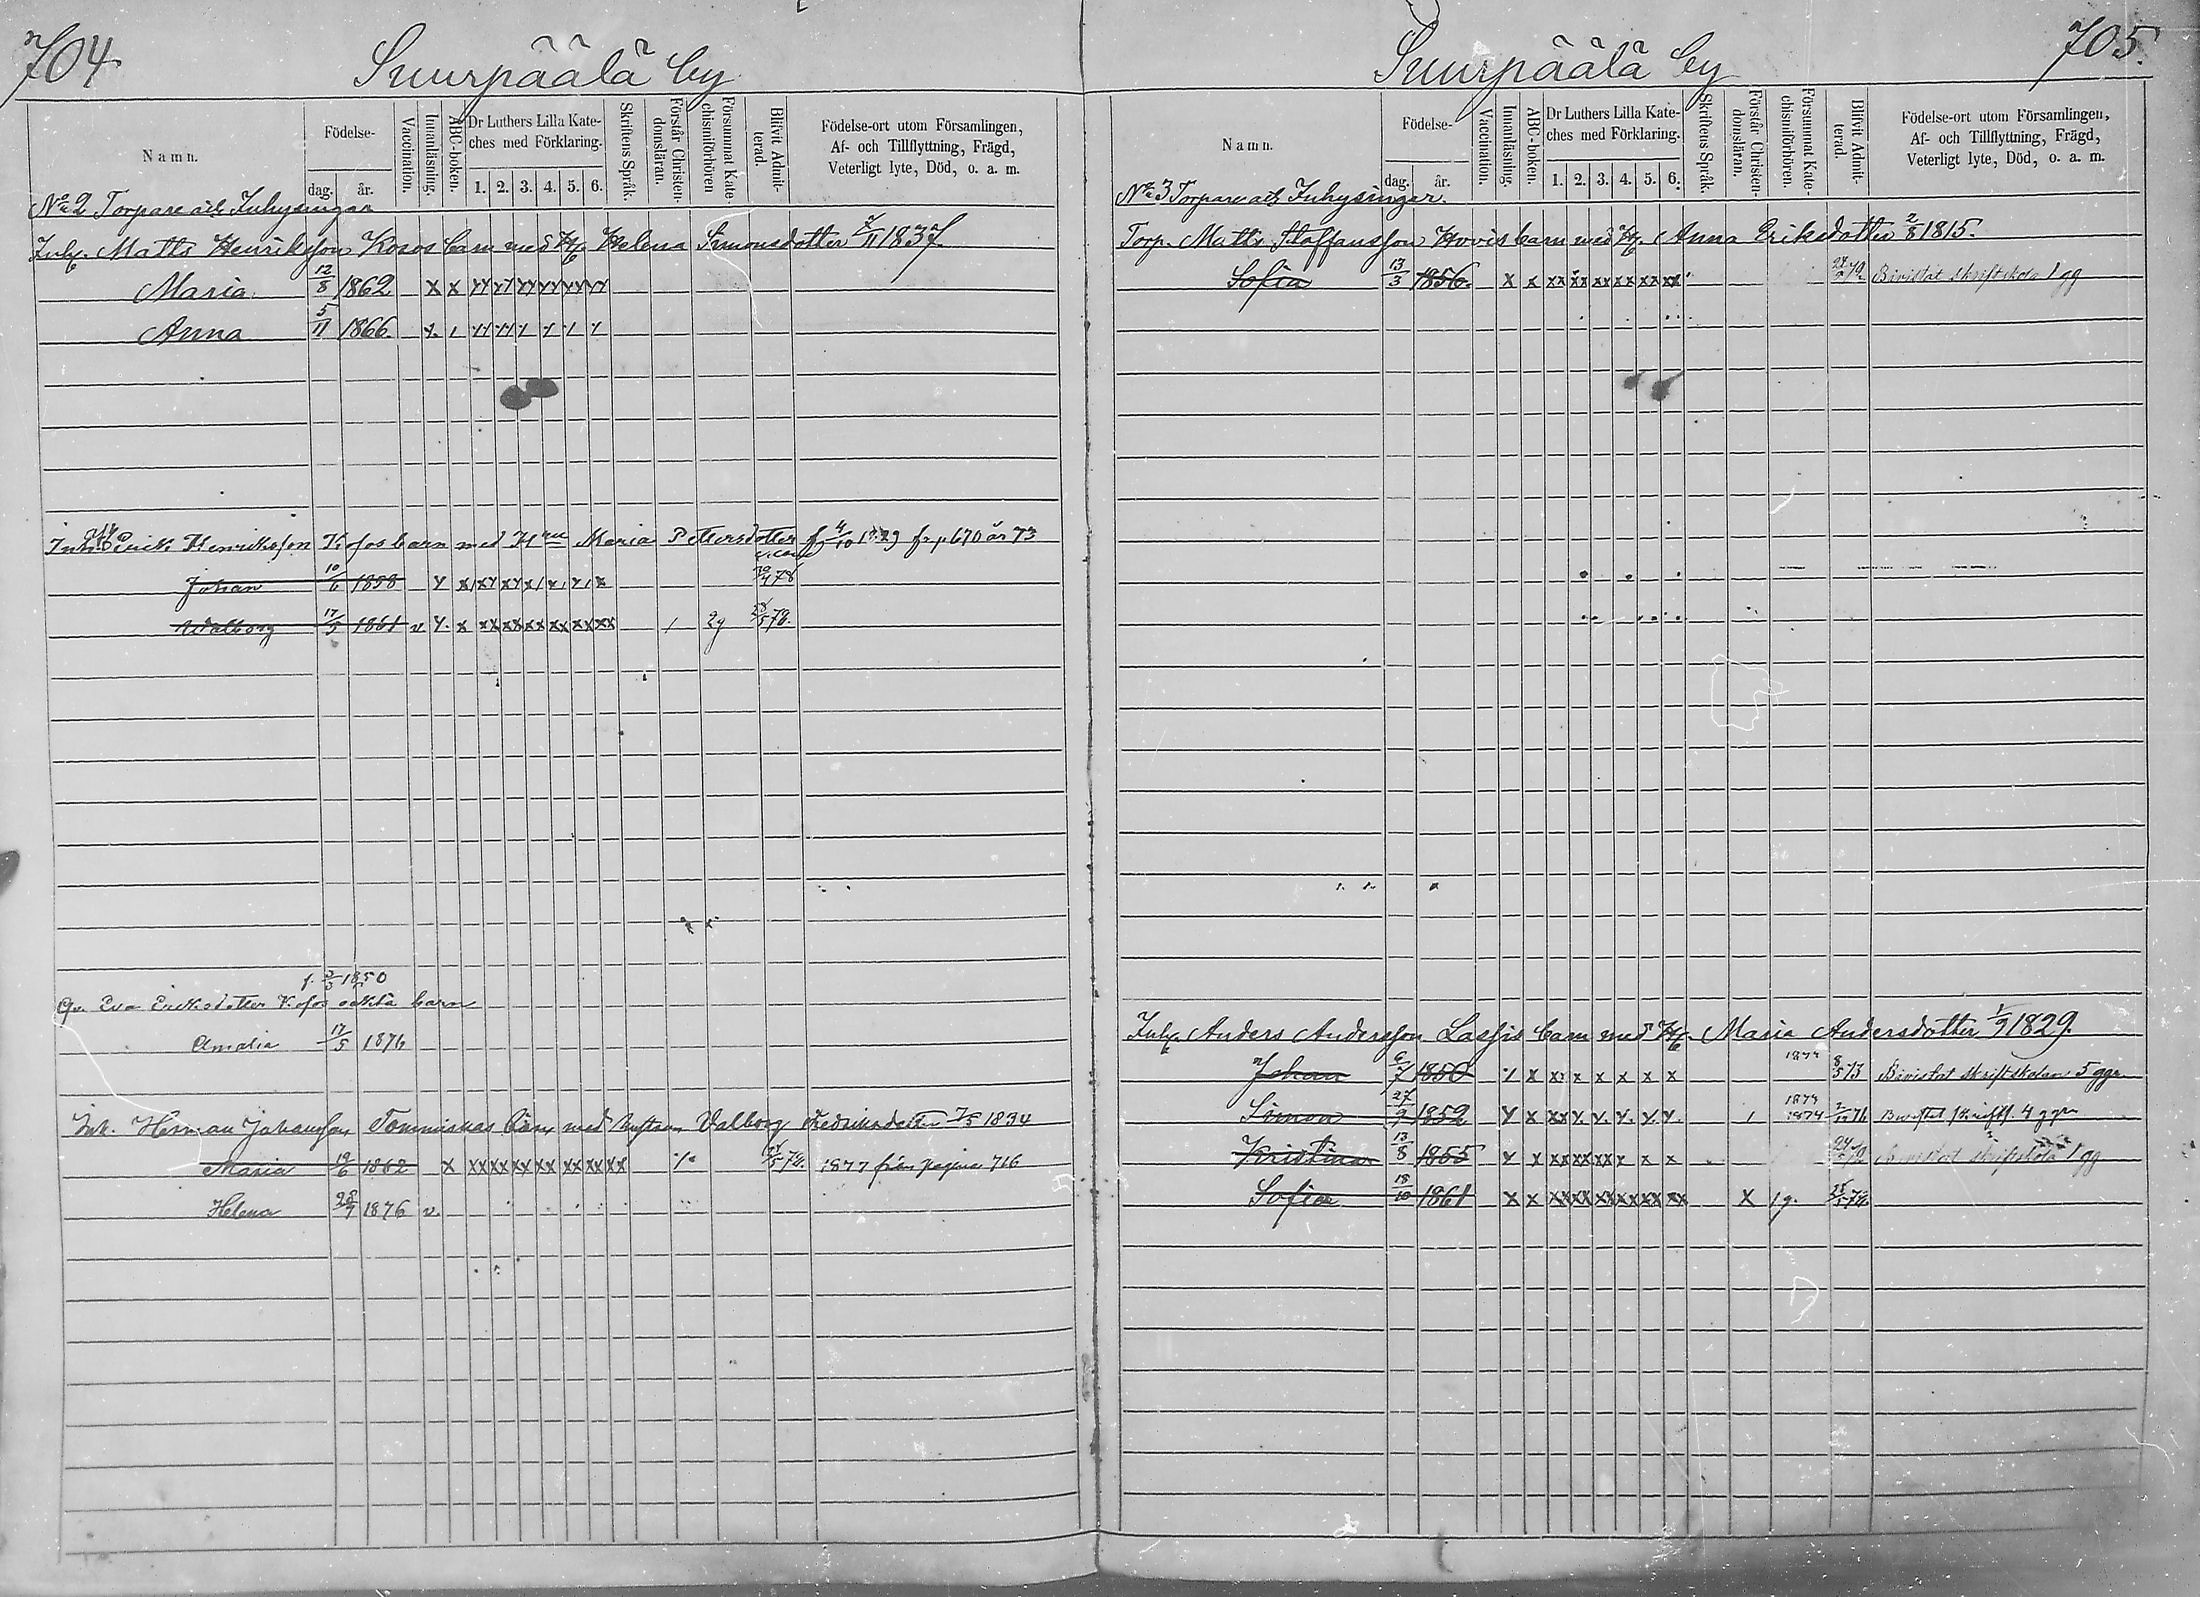 704
Suurpäälä by
Namn.
Födelse-
dag.
år.
Vaccination.
Innanläsning.
ABC-boken.
Dr Luthers Lilla Kate-
ches med Förklaring.
1. 2. 3. 4. 5. 6.
Skriftens Språk.
Förstår Christen-
domsläran.
Försummat Kate-
chismiförhören
Blifvit Admit-
terad.
Födelse-ort utom Församlingen,
Af- och Tillflyttning, Frägd,
Veterligt lyte, Död, o. a. m.
No 2 Torpare och Inhysingar
Inhs. Matts Henriksson Kosos barn med H. Helena Simonsdotter /11 1837
Maria 12/8 1862 x x
Anna 5/11 1866
Inh. Erick Henriksson Kosos barn med H Maria Pettersdotter f 4/10 fr p 670 år 73
Johan 10/6 1858 78
Walborg 17/5 1861 v x xx xx xx xx xx xx 1 2g 78.
f. 1850
Eva Ericksdotter Kosos oäkta barn
Amalia 17/5 1876
Inh. Herman Johansson Tommiskas barn med hustrun Valborg Fredriksdotter 1834
Maria 19/6 1862 x xx xx xx xx xx xx 78. 1877 från pagina 716
Helena 28/7 1876 v.
705.
Suurpäälä by
Namn.
Födelse-
dag.
år.
Vaccination.
Innanläsning.
ABC-boken.
Dr Luthers Lilla Kate-
ches med Förklaring.
1. 2. 3. 4. 5. 6.
Skriftens Språk.
Förstår Christen-
domsläran.
Försummat Kate-
chismiförhören.
Blifvit Admit-
terad.
Födelse-ort utom Församlingen,
Af- och Tillflyttning, Frägd,
Veterligt lyte, Död, o. a. m.
No 3 Torpare och Inhysingar.
Torp. Matts Staffansson Hovis barn med H. Anna Eriksdotter 2/8 1815.
Sofia 13/3 1856 x x xx xx xx xx xx xx Bivistat skriftskola 1 gg
Inhs. Anders Andersson Lassis barn med H. Maria Andersdotter 1/9 1829.
Johan 6/7 1850 x x x x x x 8/5 73 Bivistat skriftskolan 5 ggr
Simon 27/9 1852 1 1874 76 Bivistat skriftsk. 4 ggr
Kristina 13/8 1855 Bivistat skriftskola 1 gg
Sofia 18/10 1861 x x xx xx xx xx xx xx x 1g. 78.